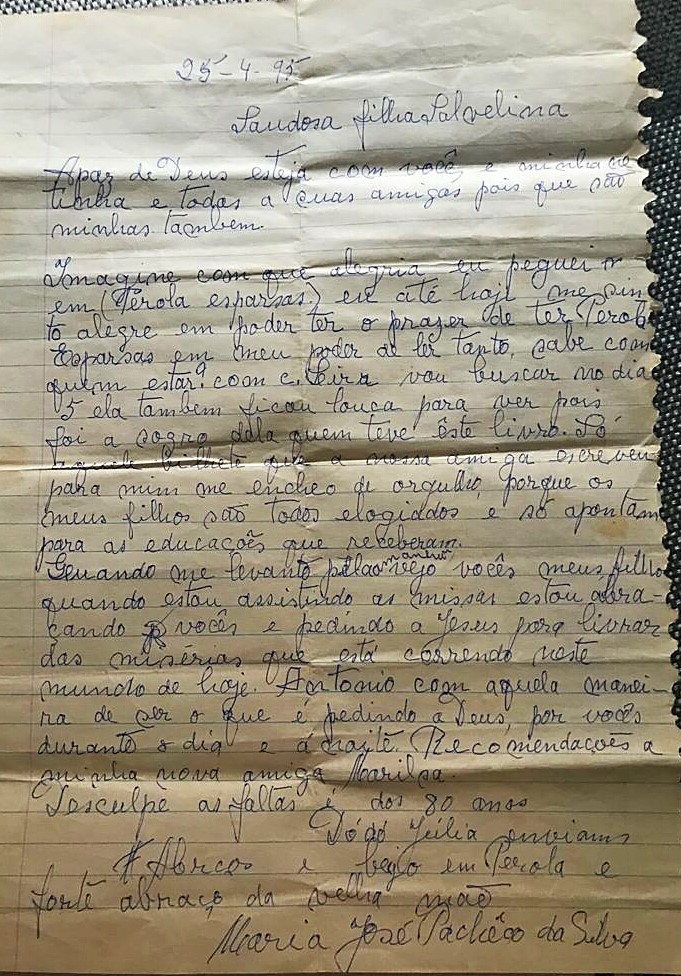 25-4-95
Saudosa filha Salvelina
A paz de Deus esteja com você, e minha ne
tinha e todas a suas amigas pois que são
minhas tambem.
Imagine com que alegria eu peguei
em (Pérola esparsas) eu até hoje me sin
to alegre em poder ter o prazer de ter Perola
Esparsas em meu poder de lêr tanto, sabe com
quem estar? com c. Leira vou buscar no dia
5 ela tambem ficou louca para ver pois
foi a sogra dela quem teve êste livro. Só
aquele bilhete que a nossa amiga escreveu
para mim me encheo de orgulho, porque os
meus filhos são todos elogiddos e só apontam
para as educações que receberam.
Quando me levanto pela manhã vejo vocês meus filho
quando estou assistindo as missas estou abra-
çando vocês e pedindo a Jesus para livrar
das misérias que está correndo neste
mundo de hoje. Antonio com aquela manei-
ra de ser o que é pedindo a Deus, por vocês
durante o dia e á noite. Recomendações a
minha nova amiga Marilsa.
Desculpe as faltas é dos 80 anos
Dódó Júlia enviams
Abrcos e beijo em Perola e
forte abraço da velha mãe
Maria José Pachêco da Silva